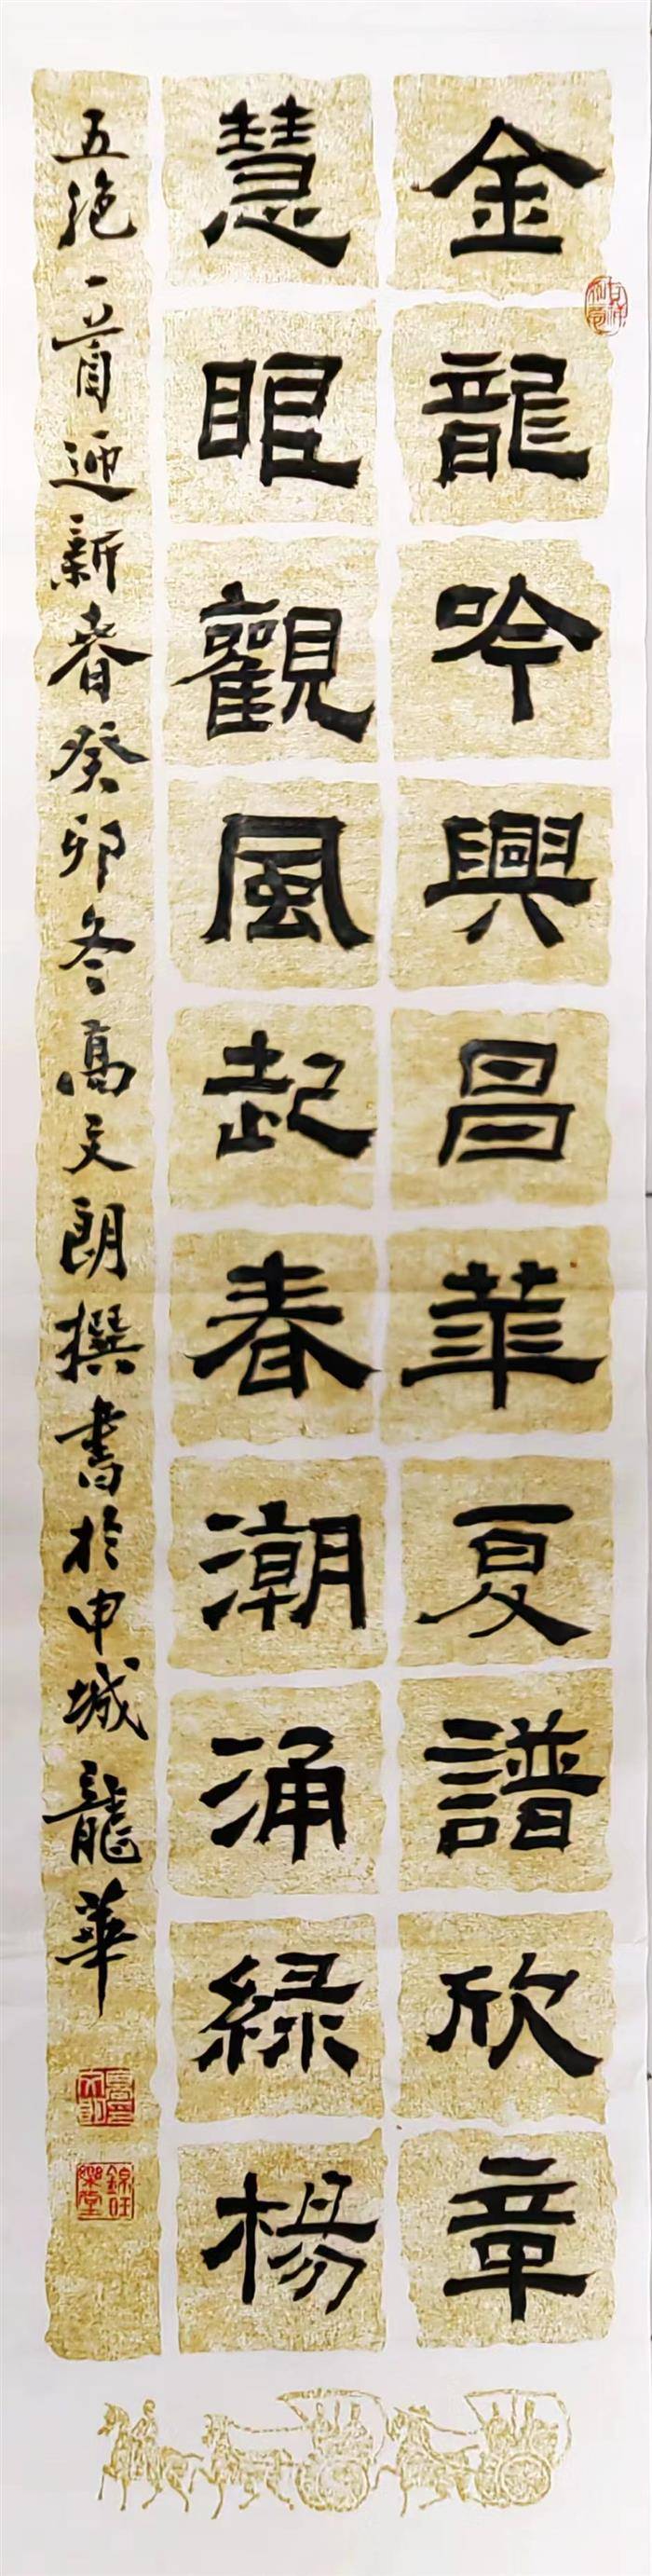 金龍吟興昌華夏譜欣章
慧眼觀風起春潮涌綠楊
五絕一首迎新春癸卯冬高文朗撰書於申城龍華